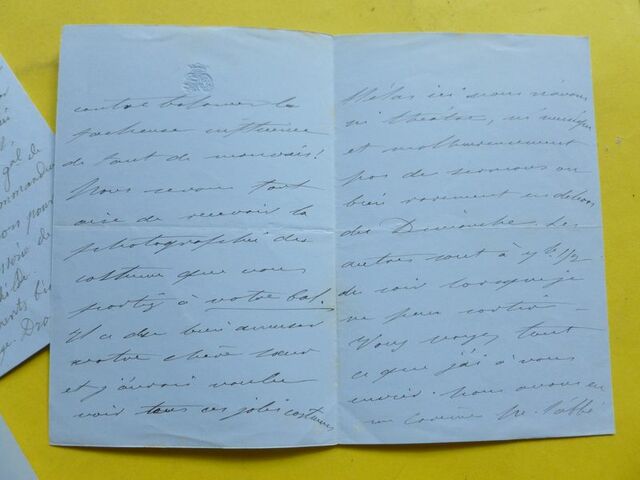 contre balancer la
facheuse influence
de tant de mauvais!
Nous serons tout
aise de recevoir la
photographie du
costume que vous
portiez à votre bal.
Il a du bien amuser
votre chère sœur
et j'aurais voulu
voir tous ces jolis costumes
Hélas ici nous n'avons
ni théâtre, ni musique
et malheureusement
pas de sermons ou
bien rarement en dehors
du Dimanche. Les
autres sont à 7h 1/2
du soir lorsque je
ne peux sortir —
Vous voyez tout
ce que j'ai à vous
envier. Nous avons eu
un Carême Mr. l'abbé
gal de
ommandan
pour
de
Dro